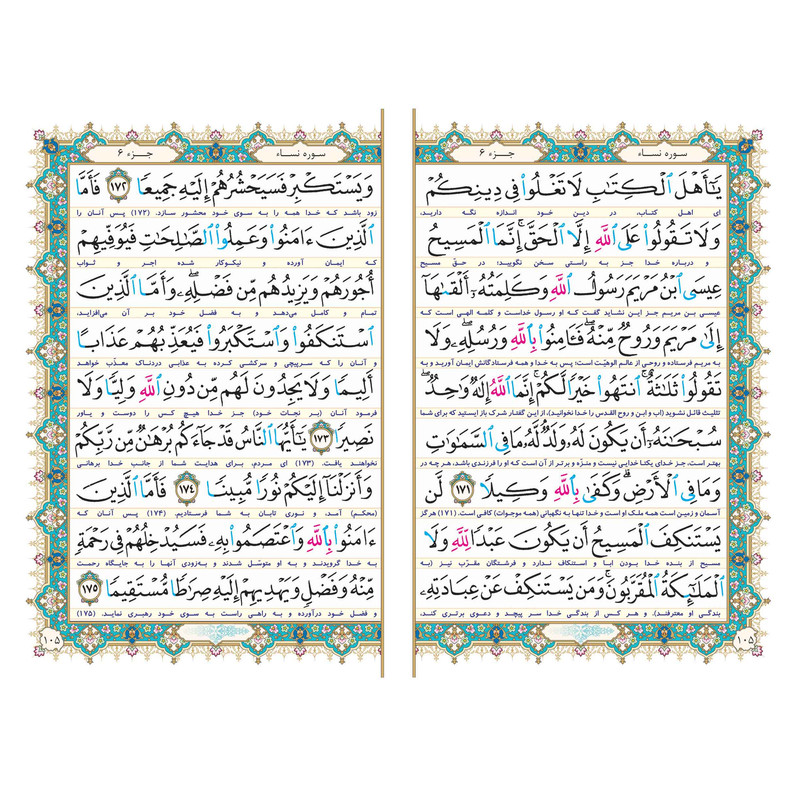 سوره نساء
جـزء ۶
يَـٰٓأَهْلَ ٱلْكِتَـٰبِ لَا تَغْلُوا۟ فِى دِينِكُمْ
ای اهل کتاب، در دین خود اندازه نگه دارید،
وَلَا تَقُولُوا۟ عَلَى ٱللَّهِ إِلَّا ٱلْحَقَّ ۚ إِنَّمَا ٱلْمَسِيحُ
و درباره خدا جز به راستی سخن نگویید؛ در حقّ مسیح
عِيسَى ٱبْنُ مَرْيَمَ رَسُولُ ٱللَّهِ وَكَلِمَتُهُۥٓ أَلْقَىٰهَآ
عیسی بن مریم جز این نشاید گفت که او رسول خداست و کلمه الهی است که
إِلَىٰ مَرْيَمَ وَرُوحٌ مِّنْهُ ۖ فَـَٔامِنُوا۟ بِٱللَّهِ وَرُسُلِهِۦ ۖ وَلَا
به مریم فرستاده و روحی از عالم الوهیّت است؛ پس به خدا و همه فرستادگانش ایمان آورید و به
تَقُولُوا۟ ثَلَـٰثَةٌ ۚ ٱنتَهُوا۟ خَيْرًا لَّكُمْ ۚ إِنَّمَا ٱللَّهُ إِلَـٰهٌ وَٰحِدٌ ۖ
تثلیث قائل نشوید (اب و ابن و روح القدس را خدا نخوانید)، از این گفتار شرک باز ایستید که برای شما
سُبْحَـٰنَهُۥٓ أَن يَكُونَ لَهُۥ وَلَدٌ ۘ لَّهُۥ مَا فِى ٱلسَّمَـٰوَٰتِ
بهتر است، جز خدای یکتا خدایی نیست و منزّه و برتر از آن است که او را فرزندی باشد، هر چه در
وَمَا فِى ٱلْأَرْضِ ۗ وَكَفَىٰ بِٱللَّهِ وَكِيلًا ۱۷۱ لَّن
آسمان و زمین است همه ملک او است و خدا تنها به نگهبانی (همه موجودات) کافی است. (۱۷۱) هرگز
يَسْتَنكِفَ ٱلْمَسِيحُ أَن يَكُونَ عَبْدًا لِّلَّهِ وَلَا
مسیح از بنده خدا بودن ابا و استنکاف ندارد و فرشتگان مقرّب نیز (به
ٱلْمَلَـٰٓئِكَةُ ٱلْمُقَرَّبُونَ ۚ وَمَن يَسْتَنكِفْ عَنْ عِبَادَتِهِۦ
بندگی او معترفند)، و هر کس از بندگی خدا سر پیچد و دعوی برتری کند،
۱۰۵
سوره نساء
جـزء ۶
وَيَسْتَكْبِرْ فَسَيَحْشُرُهُمْ إِلَيْهِ جَمِيعًا ۱۷۲ فَأَمَّا
زود باشد که خدا همه را به سوی خود محشور سازد. (۱۷۲) پس آنان را
ٱلَّذِينَ ءَامَنُوا۟ وَعَمِلُوا۟ ٱلصَّـٰلِحَـٰتِ فَيُوَفِّيهِمْ
که ایمان آورده و نیکوکار شده اجر و ثواب
أُجُورَهُمْ وَيَزِيدُهُم مِّن فَضْلِهِۦ ۖ وَأَمَّا ٱلَّذِينَ
تمام و کامل می‌دهد و به فضل خود بر آن می‌افزاید،
ٱسْتَنكَفُوا۟ وَٱسْتَكْبَرُوا۟ فَيُعَذِّبُهُمْ عَذَابًا
و آنان را که سرپیچی و سرکشی کرده به عذابی دردناک معذّب خواهد
أَلِيمًا وَلَا يَجِدُونَ لَهُم مِّن دُونِ ٱللَّهِ وَلِيًّا وَلَا
فرمود آنان (بر نجات خود) جز خدا هیچ کس را دوست و یاور
نَصِيرًا ۱۷۳ يَـٰٓأَيُّهَا ٱلنَّاسُ قَدْ جَآءَكُم بُرْهَـٰنٌ مِّن رَّبِّكُمْ
نخواهند یافت. (۱۷۳) ای مردم، برای هدایت شما از جانب خدا برهانی
وَأَنزَلْنَآ إِلَيْكُمْ نُورًا مُّبِينًا ۱۷۴ فَأَمَّا ٱلَّذِينَ
(محکم) آمد، و نوری تابان به شما فرستادیم. (۱۷۴) پس آنان که
ءَامَنُوا۟ بِٱللَّهِ وَٱعْتَصَمُوا۟ بِهِۦ فَسَيُدْخِلُهُمْ فِى رَحْمَةٍ
به خدا گرویدند و به او متوسّل شدند و به‌زودی آنها را به جایگاه رحمت
مِّنْهُ وَفَضْلٍ وَيَهْدِيهِمْ إِلَيْهِ صِرَٰطًا مُّسْتَقِيمًا ۱۷۵
و فضل خود درآورده و به راهی راست به سوی خود رهبری نماید. (۱۷۵)
۱۰۵